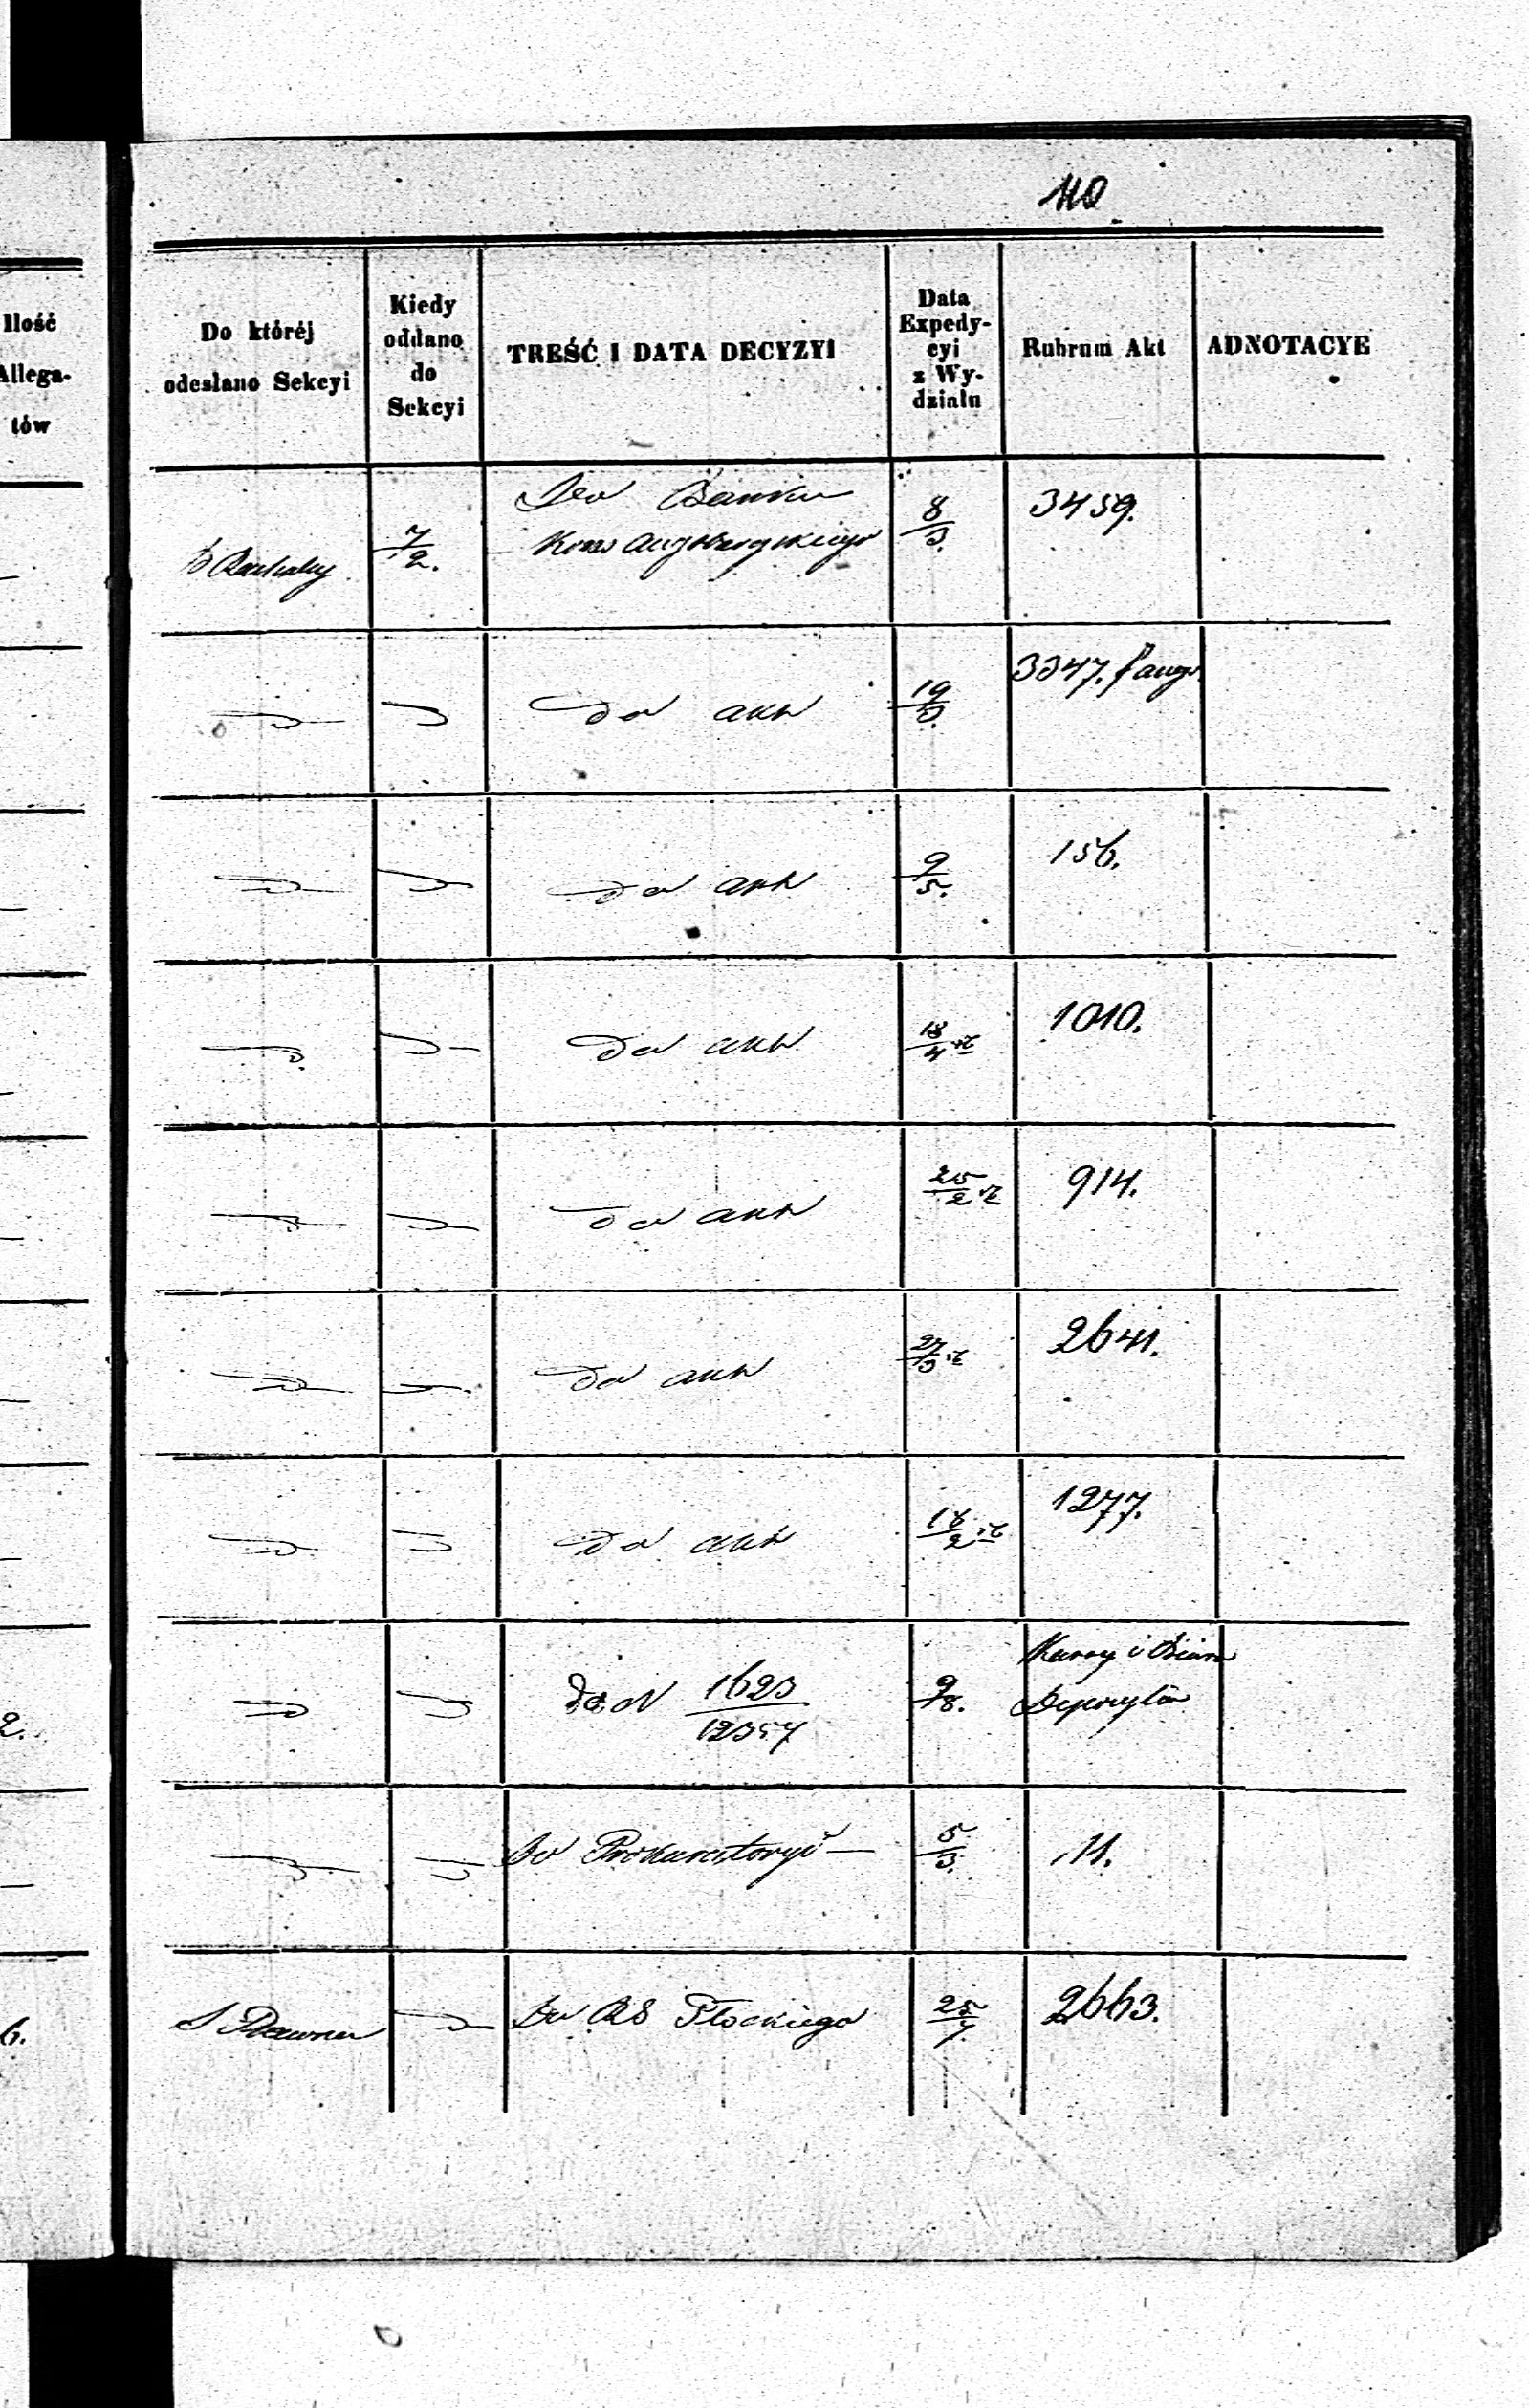 110
Ilość
Allega-
tów
Do któréj
odesłano Sekcyi
Kiedy
oddano
do
Sekcyi
TREŚĆ I DATA DECYZYI
Data
Expedy-
cyi
z Wy-
działu
Rubrum Akt
ADNOTACYE
7/2.
Do Banku
Augustowskiego
8/3.
3459.
Do akt
19/3.
3347.
Do akt
9/5.
156.
Do akt
18/4
1010.
Do akt
25/2
914.
Do akt
27/3
2641.
Do akt
18/2
1277.
2.
Do N 1623/12357
9/8.
Kassy i
Depozytów
Do Prokuratoryi —
5/3.
11.
6.
S Prawna
Do RG Płockiego
25/7.
2663.